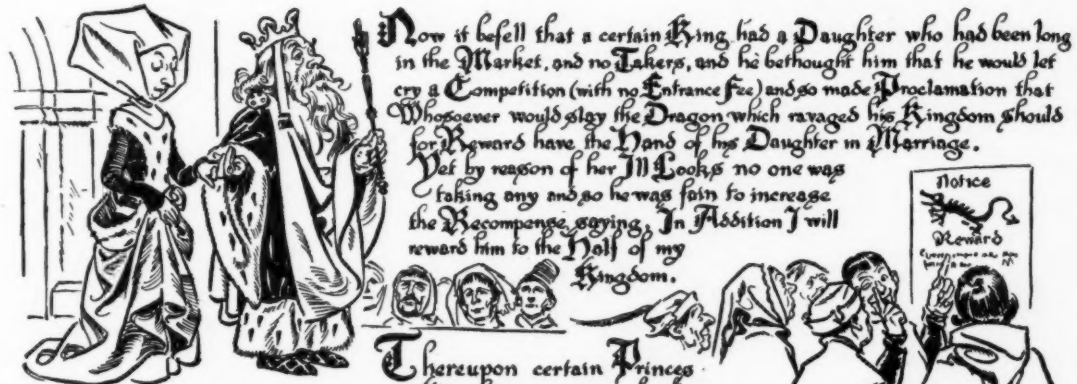 Now it befell that a certain King had a Daughter who had been long
in the Market, and no Takers, and he bethought him that he would let
cry a Competition (with no Entrance Fee) and so made Proclamation that
Whosoever would slay the Dragon which ravaged his Kingdom should
for Reward have the Hand of his Daughter in Marriage.
Yet by reason of her Ill Looks no one was
taking any and so he was fain to increase
the Recompense, saying, In Addition I will
reward him to the Half of my
Kingdom.
Notice
Reward
Thereupon certain Princes